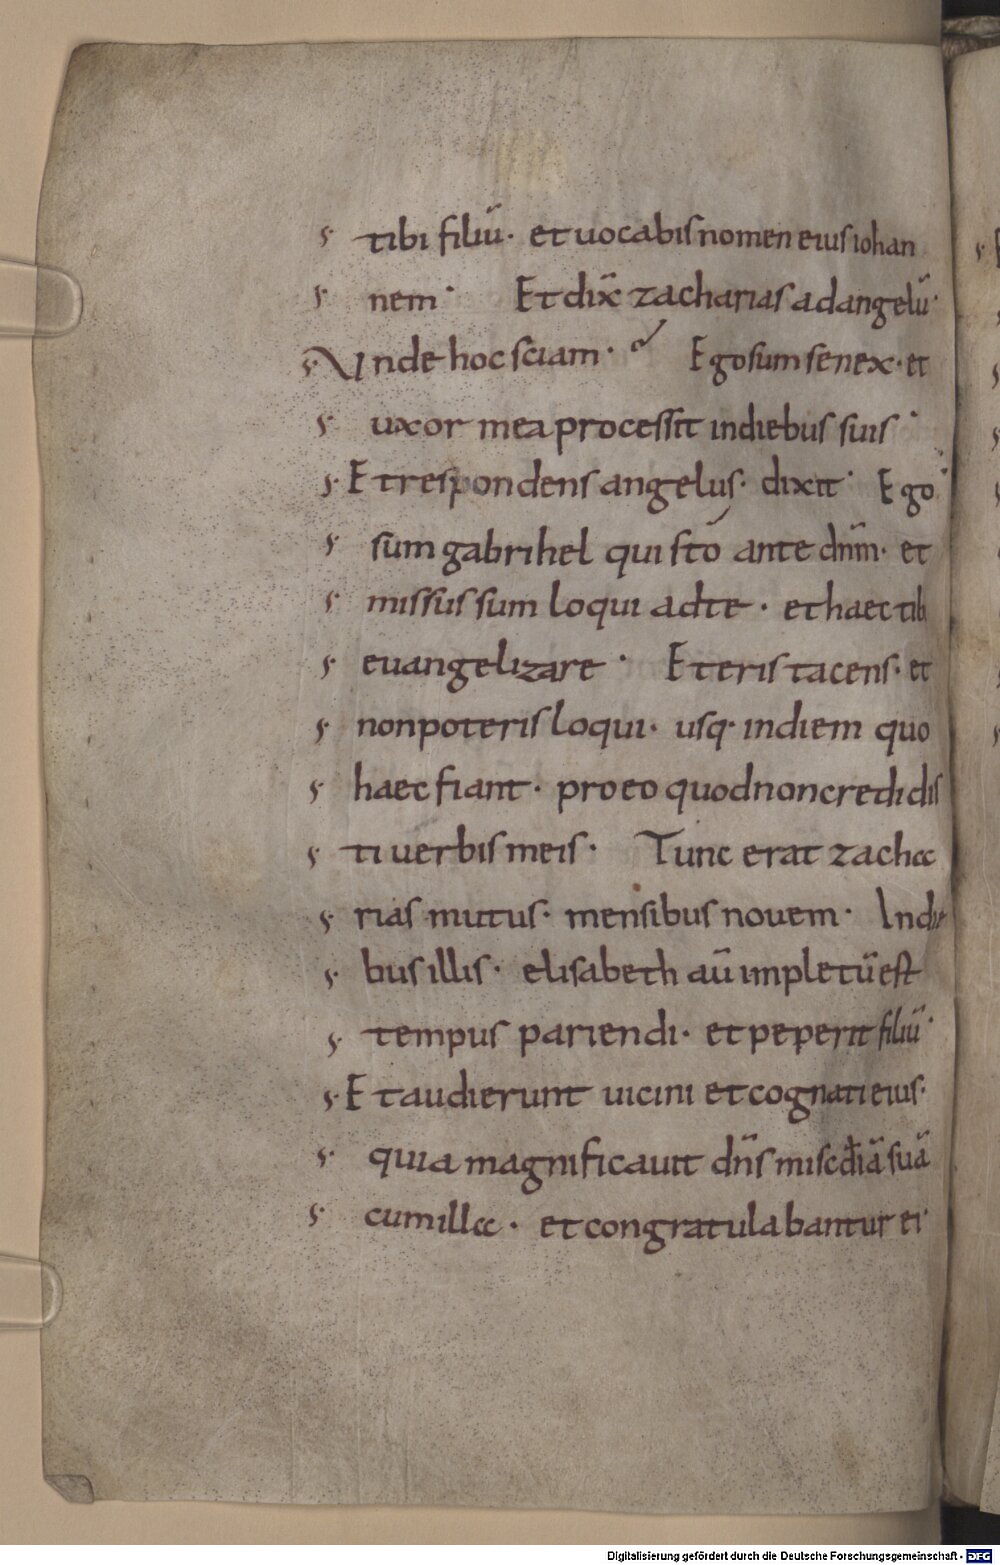 tibi filiū· et uocabis nomen eius iohan
nem· Et dix̄ zacharias ad angelū·
Unde hoc sciam·? Ego sum senex· et
uxor mea processit in diebus suis·
Et respondens angelus· dixit· Ego
sum gabrihel qui sto ante dn̄m· et
missus sum loqui ad te· et haec tibi
euangelizare· Et eris tacens· et
non poteris loqui· usq· in diem quo
haec fiant· pro eo quod non credidis
ti uerbis meis· Tunc erat zacha
rias mutus· mensibus nouem· In die
bus illis· elisabeth aū impletū est
tempus pariendi· et peperit filiū·
Et audierunt uicini et cognati eius·
quia magnificauit dn̄s misc̄diā suā
cum illa· et congratulabantur ei
Digitalisierung gefördert durch die Deutsche Forschungsgemeinschaft - DFG